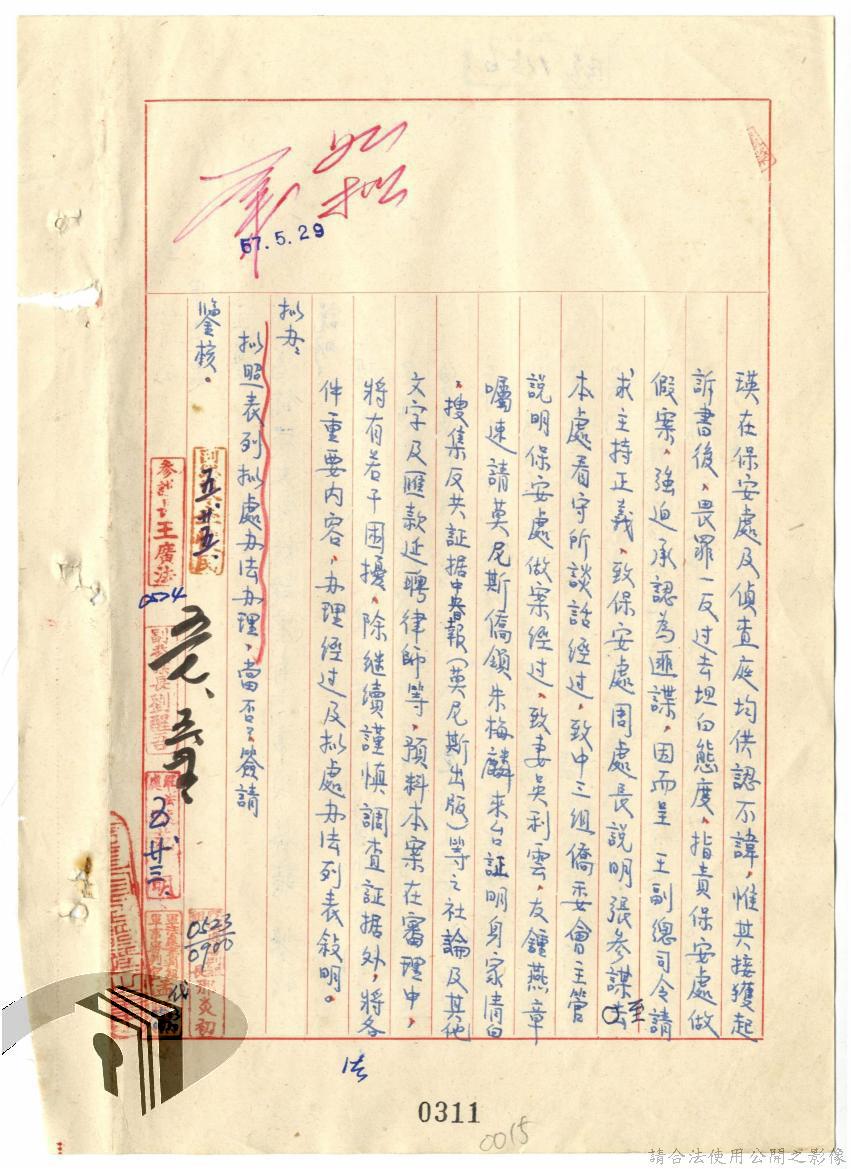 瑛在保安處及偵查庭均供認不諱，惟其接獲起
訴書後，畏罪一反过去坦白態度，指責保安處做
假案，強迫承認為匪諜，因而呈 王副總司令請
求主持正義，致保安處周處長說明張參謀至
本處看守所談話經过，致中三組僑委會主管
說明保安處做案經过，致妻吳利雲，友鍾燕章
囑速請莫尼斯僑領朱梅麟來台証明身家清白
，搜集反共証据中春報（莫尼斯出版）等之社論及其他
文字及匯款延聘律師等，預料本案在審理中，
將有若干困擾，除継續謹慎調查証据外，將各
件重要內容，办理經过及拟處办法列表敍明。
拟办：
拟照表列拟處办法办理，當否？簽請
鑒核。
照拟
57.5.29
五、廿五、
參謀
王廣法
0524
副
長劉醒吾
五廿三
0523
0900
代
法
0311
0015
請合法使用公開之影像